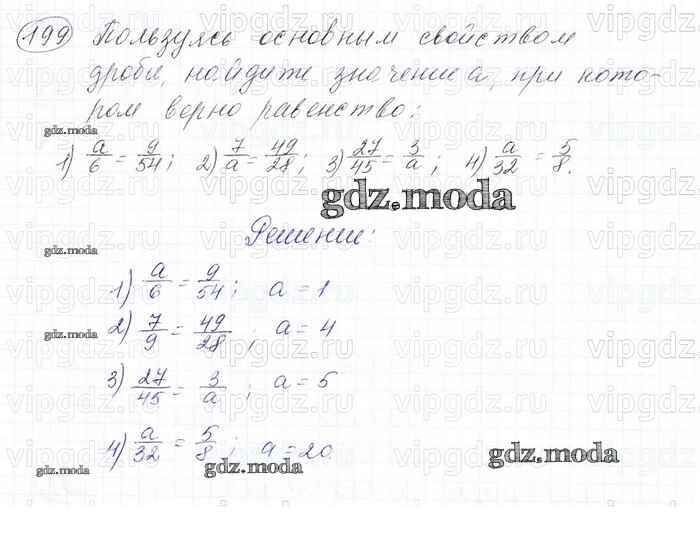 199 Пользуясь основным свойством
дроби, найдите значение a, при кото-
ром верно равенство:
1) a/6 = 9/54; 2) 7/a = 49/28; 3) 27/45 = 3/a; 4) a/32 = 5/8.
Решение:
1) a/6 = 9/54; a = 1
2) 7/9 = 49/28; a = 4
3) 27/45 = 3/a; a = 5
4) a/32 = 5/8; a = 20
gdz.moda
gdz.moda
gdz.moda
gdz.moda
gdz.moda
gdz.moda
gdz.moda
vipgdz.ru